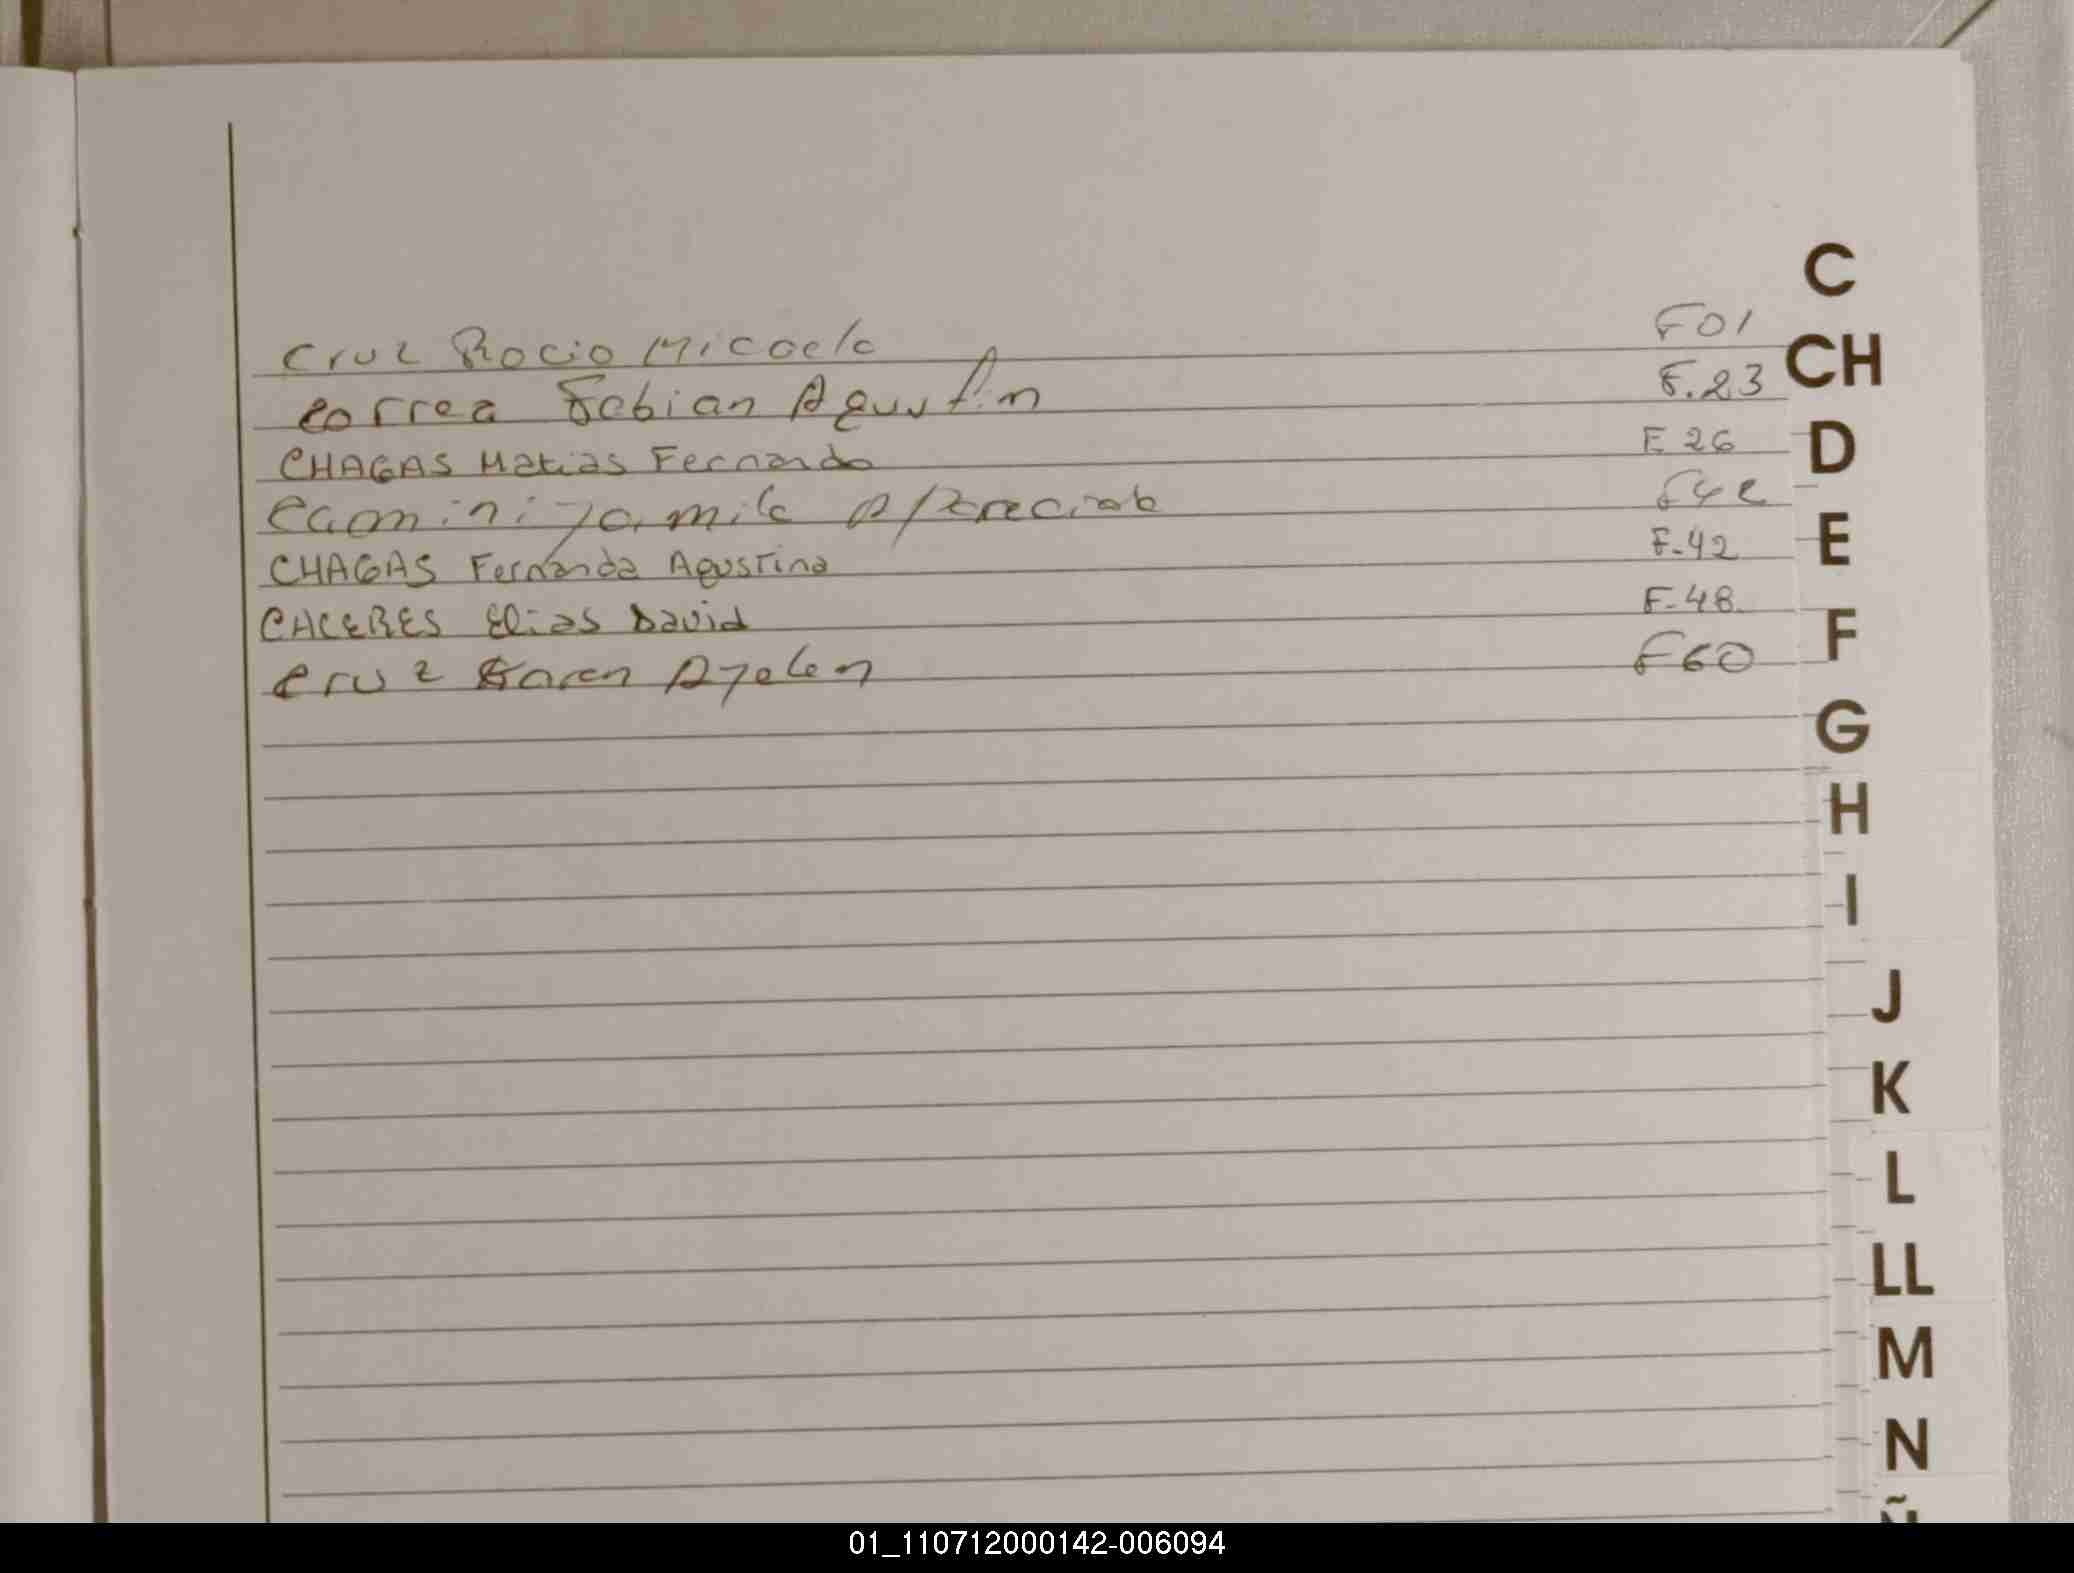 Cruz Rocio Micaela F01
Correa Fabian Agustin F.23
CHAGAS Matias Fernando F 26
Yamila
CHAGAS Fernanda Agustina F-42
CACERES Elias David F-48
Cruz Karen Ayelen F60
C
CH
D
E
F
G
H
I
J
K
L
LL
M
N
Ñ
01_110712000142-006094